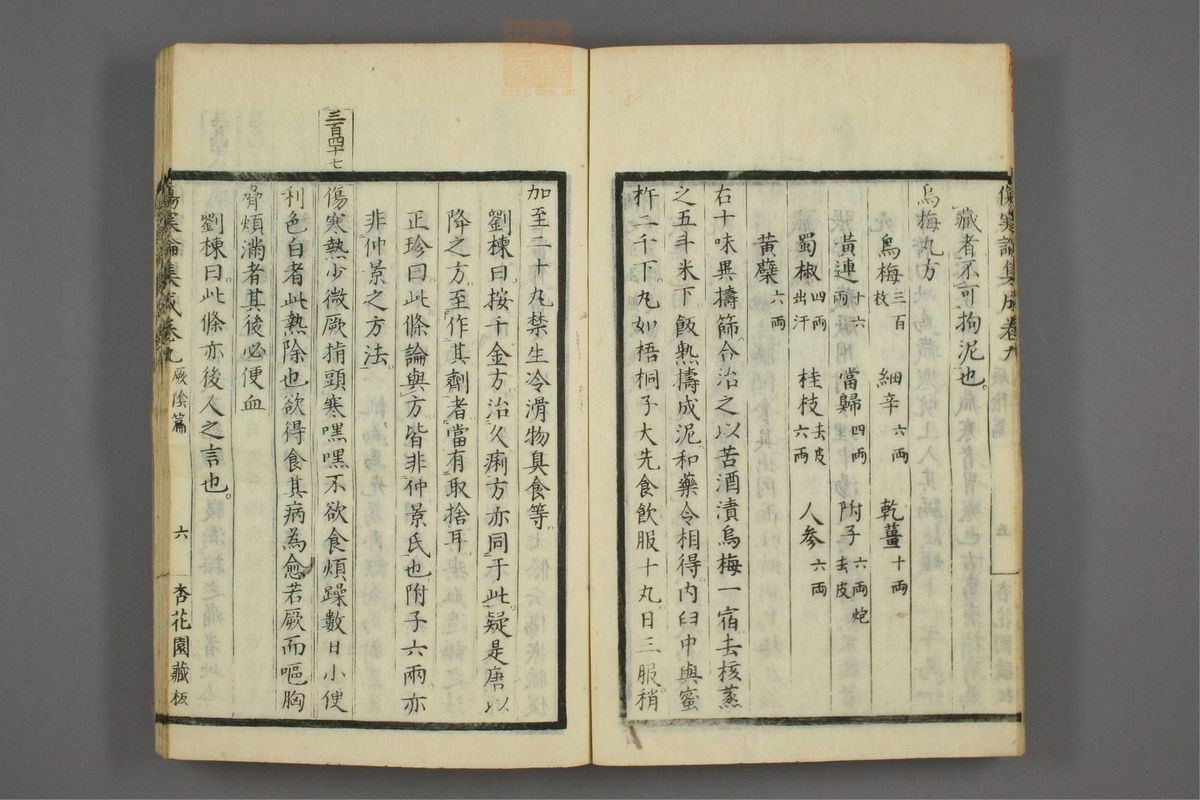 傷寒論集成卷九
藏者不可拘泥也
烏梅丸方
烏梅三百枚 細辛六兩 乾薑十兩
黃連十六兩 當歸四兩 附子六兩炮去皮
蜀椒四兩出汗 桂枝六兩去皮 人參六兩
黃蘗六兩
右十味異擣篩合治之以苦酒漬烏梅一宿去核蒸
之五斗米下飯熟擣成泥和藥令相得內臼中與蜜
杵二千下丸如梧桐子大先食飲服十丸日三服稍
加至二十丸禁生冷滑物臭食等
劉棟曰按千金方治久痢方亦同于此疑是唐以
降之方至作其劑者當有取捨耳
正珍曰此條論與方皆非仲景氏也附子六兩亦
非仲景之方法
三百四十七
傷寒熱少微厥指頭寒嘿嘿不欲食煩躁數日小便
利色白者此熱除也欲得食其病為愈若厥而嘔胸
脅煩滿者其後必便血
劉棟曰此條亦後人之言也
傷寒論集成卷九 厥陰篇 六 杏花園藏板